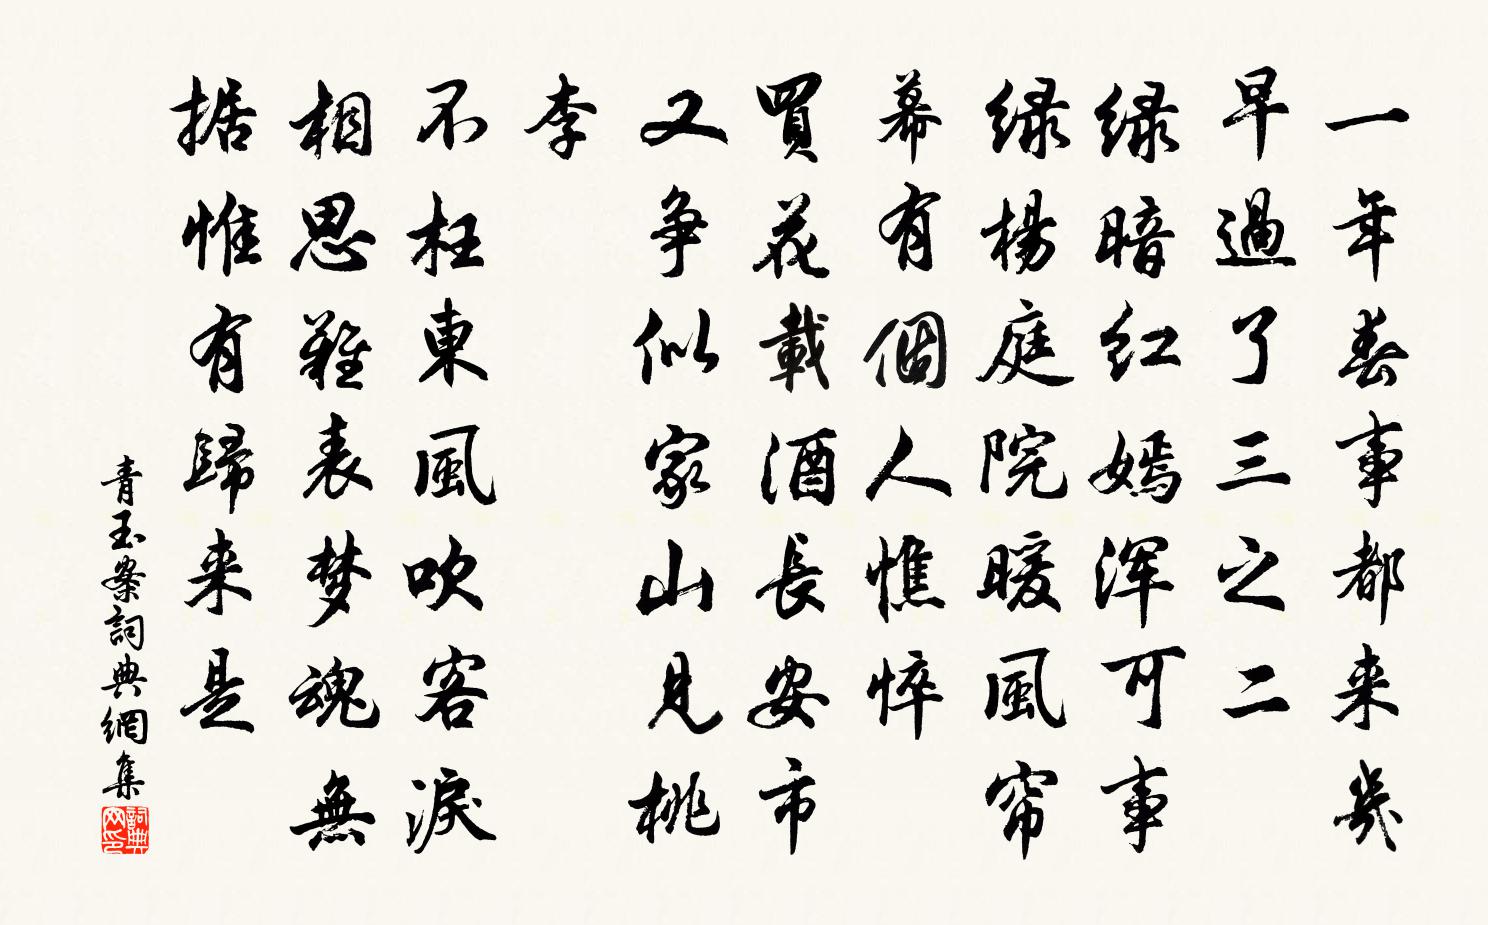 一年春事都来幾
早過了三之二
緑暗红嫣浑可事
緑楊庭院暖風帘
幕有個人憔悴
買花載酒長安市
又争似家山見桃
李
不枉東風吹客淚
相思難表梦魂無
据惟有歸来是
青玉案詞典網集
詞典网印